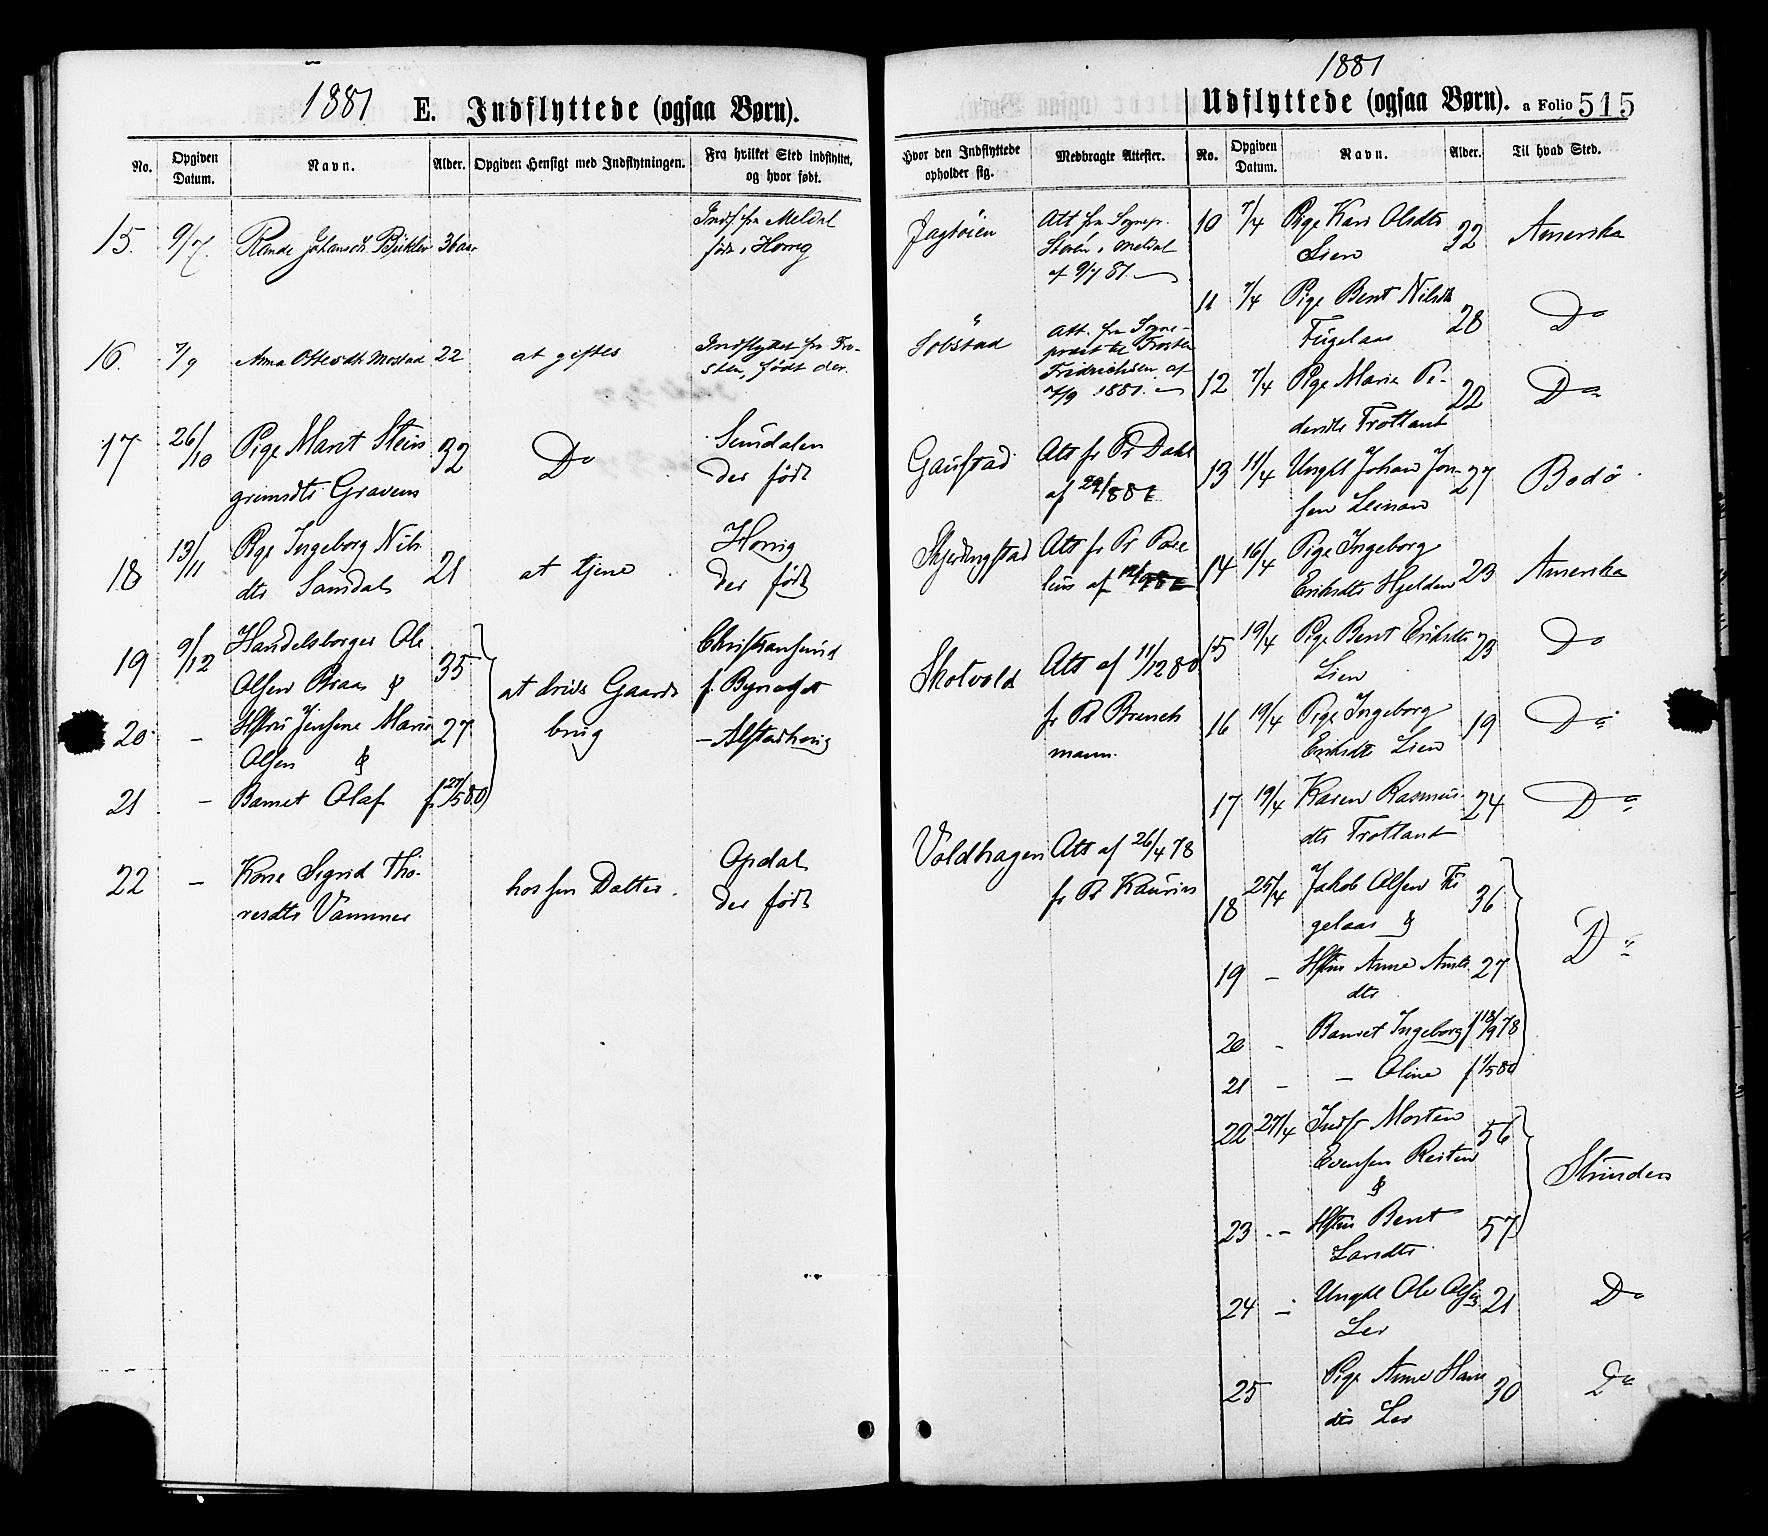 1881
E. Indflyttede (ogsaa Børn).
No. Opgiven Datum. Navn. Alder. Opgiven Hensigt med Indflytningen. Fra hvilket Sted indflyttet, og hvor født.
Hvor den Indflyttede opholder sig. Medbragte Attester.
15. 9/7. Johansdt 36 aar
Indf fra Meldal
født i Horrig
Att fra Sognepr.
Støren i Meldal
af 9/7 81.
16. 7/9 Anna Ottersdt. Mostad 22 at giftes
Indflyttet fra Fro-
sten, født der.
Solstad
Att. fra Sogne-
præst til Frosten
Fridrichsen af
7/9 1881.
17 26/10 Pige Marit Stein
grimsdtr Gravem
32 Do
Sundalen
der født
Gaustad
Att fr Pr Dahl
af
18 13/11 Pige Ingeborg Nils
dtr Samdal
21 at tjene
Horrig
der født
Skjerdingstad
Att fr Pr
af
19 9/12 Handelsborger Ole
Olsen Braa &
35
at drive Gaards
brug
Christiansund
f. Bynæsset
Skotvold
Att af 11/12 80
fr Pr Brinch
mann.
20 - Hstru Jensine Marie
Olsen &
27
21 - Barnet Olaf f. 27/5 80
22 - Kone Sigrid Tho-
resdtr Vammer
hos sin Datter.
Opdal
der født
Voldhagen
Att af 26/4 78
fr Pr Kaurin
1881
Udflyttede (ogsaa Børn). a Folio 515
No. Opgiven Datum. Navn. Alder. Til hvad Sted.
10 7/4 Pige Kari Olsdtr
Lien
32 Amerika
11 7/4 Pige Berit Nilsdtr
Fugelaas
28 Do
12 7/4 Pige Marie Pe-
dersdtr Trotland
22 Do
13 11/4 Ungkl Johan Jon-
sen Leinan
27 Bodø
14 16/4 Pige Ingeborg
Eriksdtr Hjelden
23 Amerika
15 19/4 Pige Berit Eriksdtr
Lien
23 Do
16 19/4 Pige Ingeborg
Eriksdtr Lien
19 Do
17 19/4 Karen Rasmus-
dtr Trotland
24 Do
18 25/4 Jakob Olsen Fu
gelaas &
36
Do
19 - Hstru Anne Arnts
dtr
27
20 - Barnet Ingeborg f 18/9 78
21 - - Oline f 1/5 80
22 27/4 Indst Morten
Evensen Reiten
&
56
Strinden
23 - Hstru Berit
Larsdtr
57
24 - Ungkl Ole Olsen
Ler
21 Do
25 Pige Anne Hans
dtr Ler
30 Do